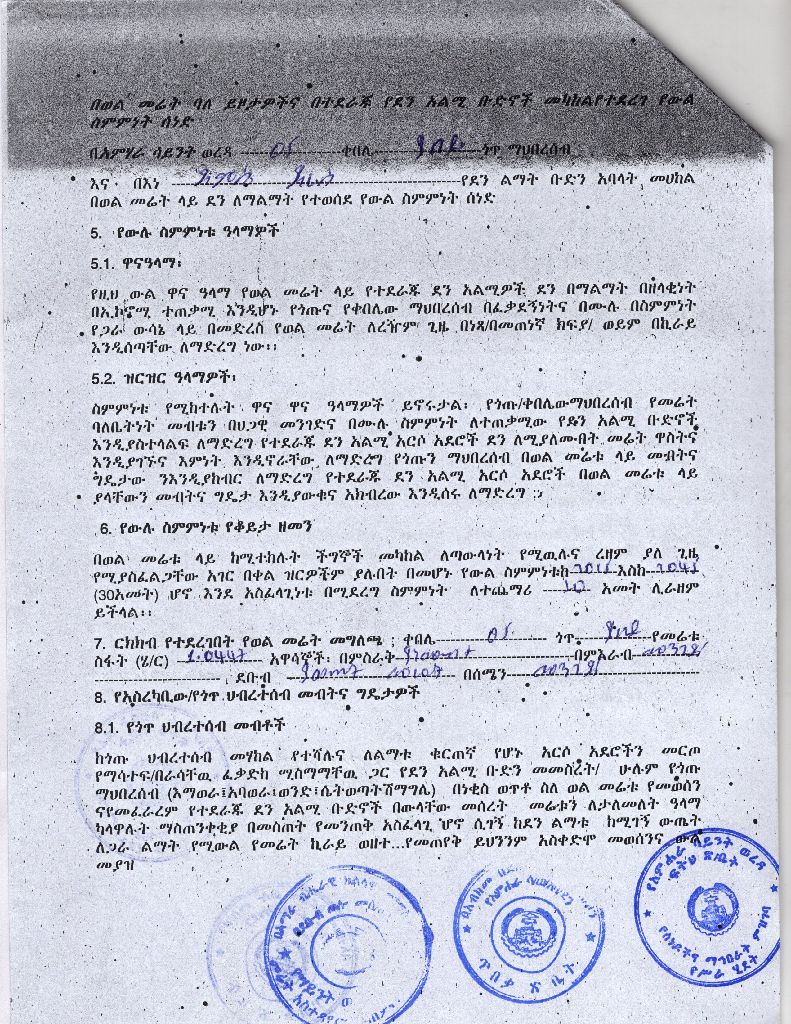 በወል መሬት ባለ ይዞታዎችና በተደራጁ የደን አልሚ ቡድኖች መካከልየተደረገ የውል
ስምምነት ሰነድ
በአምሃራ ሳይንት ወረዳ ---------- 05 ----------ቀበሌ---------- ----------ጎጥ ማህበረሰብ
እና በእነ ---------- ----------የደን ልማት ቡድን አባላት መሀከል
በወል መሬት ላይ ደን ለማልማት የተወሰደ የውል ስምምነት ሰነድ
5. የውሉ ስምምነቱ ዓላማዎች
5.1. ዋናዓላማ፡
የዚህ ውል ዋና ዓላማ የወል መሬት ላይ የተደራጁ ደን አልሚዎች ደን በማልማት በዘላቂነት
በኢኮኖሚ ተጠቃሚ እንዲሆኑ የጎጡና የቀበሌው ማህበረሰብ በፈቃደኝነትና በሙሉ በስምምነት
የጋራ ውሳኔ ላይ በመድረስ የወል መሬት ለረዥም ጊዜ በነጻ/በመጠነኛ ክፍያ/ ወይም በኪራይ
እንዲሰጣቸው ለማድረግ ነው፡፡
5.2. ዝርዝር ዓላማዎች፡
ስምምነቱ የሚከተሉት ዋና ዋና ዓላማዎች ይኖሩታል፡ የጎጡ/ቀበሌውማህበረሰብ የመሬት
ባለቤትነት መብቱን በህጋዊ መንገድና በሙሉ ስምምነት ለተጠቃሚው የደን አልሚ ቡድኖች
እንዲያስተላልፍ ለማድረግ የተደራጁ ደን አልሚ አርሶ አደሮች ደን ለሚያለሙበት መሬት ዋስትና
እንዲያገኙና እምነት እንዲኖራቸው ለማድረግ የጎጡን ማህበረሰብ በወል መሬቱ ላይ መብትና
ግዴታው ንእንዲያከብር ለማድረግ የተደራጁ ደን አልሚ አርሶ አደሮች በወል መሬቱ ላይ
ያላቸውን መብትና ግዴታ እንዲያውቁና አክብረው እንዲሰሩ ለማድረግ ፡፡
6. የውሉ ስምምነቱ የቆይታ ዘመን
በወል መሬቱ ላይ ከሚተከሉት ችግኞች መካከል ለጣውላነት የሚዉሉና ረዘም ያለ ጊዜ
የሚያስፈልጋቸው አገር በቀል ዝርዎችም ያሉበት በመሆኑ የውል ስምምነቱከ-2015-እስከ--2045--
(30አመት) ሆኖ እንደ አስፈላጊነቱ በሚደረግ ስምምነት ለተጨማሪ ---10--- አመት ሊራዘም
ይችላል፡፡
7. ርክክብ የተደረገበት የወል መሬት መግለጫ ፡ ቀበሌ---------- 05 ---------- ጎጥ---------- የመሬቱ
ስፋት (ሄ/ር) --1.0447-- አዋሳኞች፡ በምስራቅ---------- ----------በምእራብ---------- መንገድ
---------- ፣ ደቡብ ---------- ---------- በሰሜን---------- መንገድ ----------
8. የአስረካቢው/የጎጥ ህብረተሰብ መብትና ግዴታዎች
8.1. የጎጥ ህብረተሰብ መብቶች
ከጎጡ ህብረተሰብ መሃከል የተሻሉና ለልማቱ ቁርጠኛ የሆኑ አርሶ አደሮችን መርጦ
የማሳተፍ/በራሳቸዉ ፈቃድከ ሚስማማቸዉ ጋር የደን አልሚ ቡድን መመስረት/ ሁሉም የጎጡ
ማህበረሰብ (እማወራ፣አባወራ፣ወንድ፣ሴትወጣትሽማግሌ) በነቂስ ወጥቶ ስለ ወል መሬቱ የመወሰን
ናየመፈራረም የተደራጁ ደን አልሚ ቡድኖች በውላቸው መሰረት መሬቱን ለታለመለት ዓላማ
ካላዋሉት ማስጠንቀቂያ በመስጠት የመንጠቅ አስፈላጊ ሆኖ ሲገኝ ከደን ልማቱ ከሚገኝ ውጤት
ለጋራ ልማት የሚውል የመሬት ኪራይ ወዘተ...የመጠየቅ ይህንንም አስቀድሞ መወሰንና ውል
መያዝ
የአምሐራ ሳይንት ወረዳ
ፍትህ ጽ/ቤት
የሰነዶችና ማኅበራት ምዝገባ
የሥራ ሂደት
ጥበቃ ጽ ቤት